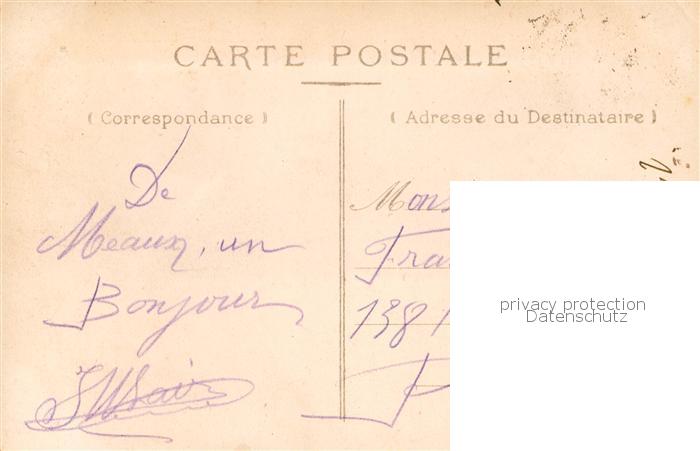 CARTE POSTALE
( Correspondance )
( Adresse du Destinataire )
De
Meaux, un
Bonjour
Mons
Fra
138
P
privacy protection
Datenschutz